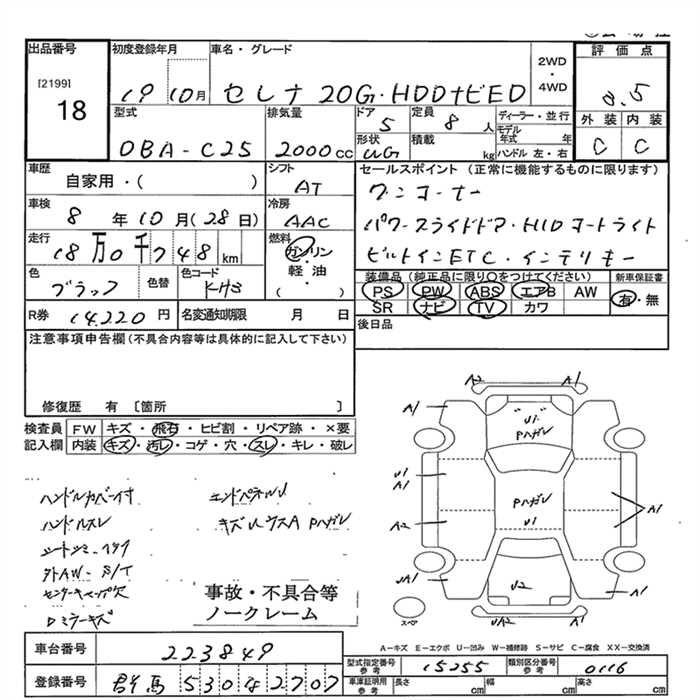 出品番号 初度登録年月 車名・グレード 2WD・4WD 評価点
[2199]
18
19 10月 セレナ 20G・HDDナビED 3.5
型式 排気量 ドア 定員 ディーラー・並行 外装 内装
DBA-C25 2000cc 5 8人 モデル年式 年 C C
形状 積載 ハンドル 左・右
UG kg
車歴 シフト セールスポイント(正常に機能するものに限ります)
自家用・( ) AT
車検 冷房
8年10月(28日) AAC パワースライドドア・HIDヘッドライト
走行 燃料 ビルトインETC・インテリキー
18万0千748km ガソリン・軽・油( )
色 色替 色コード 装備品(純正品に限り○をつけてください) 新車保証書
ブラック KH3 PS PW ABS エアB AW 有・無
SR ナビ TV カワ
R券 14,220円 名変通知期限 月 日 後日品
注意事項申告欄(不具合内容等は具体的に記入して下さい)
修復歴 有〔箇所 〕
検査員記入欄 FW キズ・飛石・ヒビ割・リペア跡・×要
内装 キズ・汚レ・コゲ・穴・スレ・キレ・破レ
ハンドルカバー付 エンドパネルU
ハンドルスレ キズ ルーフA Pハガレ
外AW-S/T
事故・不具合等
ノークレーム
A2 A1
A1 U1 A1
Pハガレ
U1
A1 Pハガレ A1
A2 U1
UA1 U2 A1
スペア UA2 A1
A-キズ E-エクボ U-凹み W-補修跡 S-サビ C-腐食 XX-交換済
車台番号 223849
型式指定番号 参考 15255 類別区分番号 参考 0116
登録番号 群馬 530 ( 2707
車庫証明用 参考 長さ cm 幅 cm 高さ cm